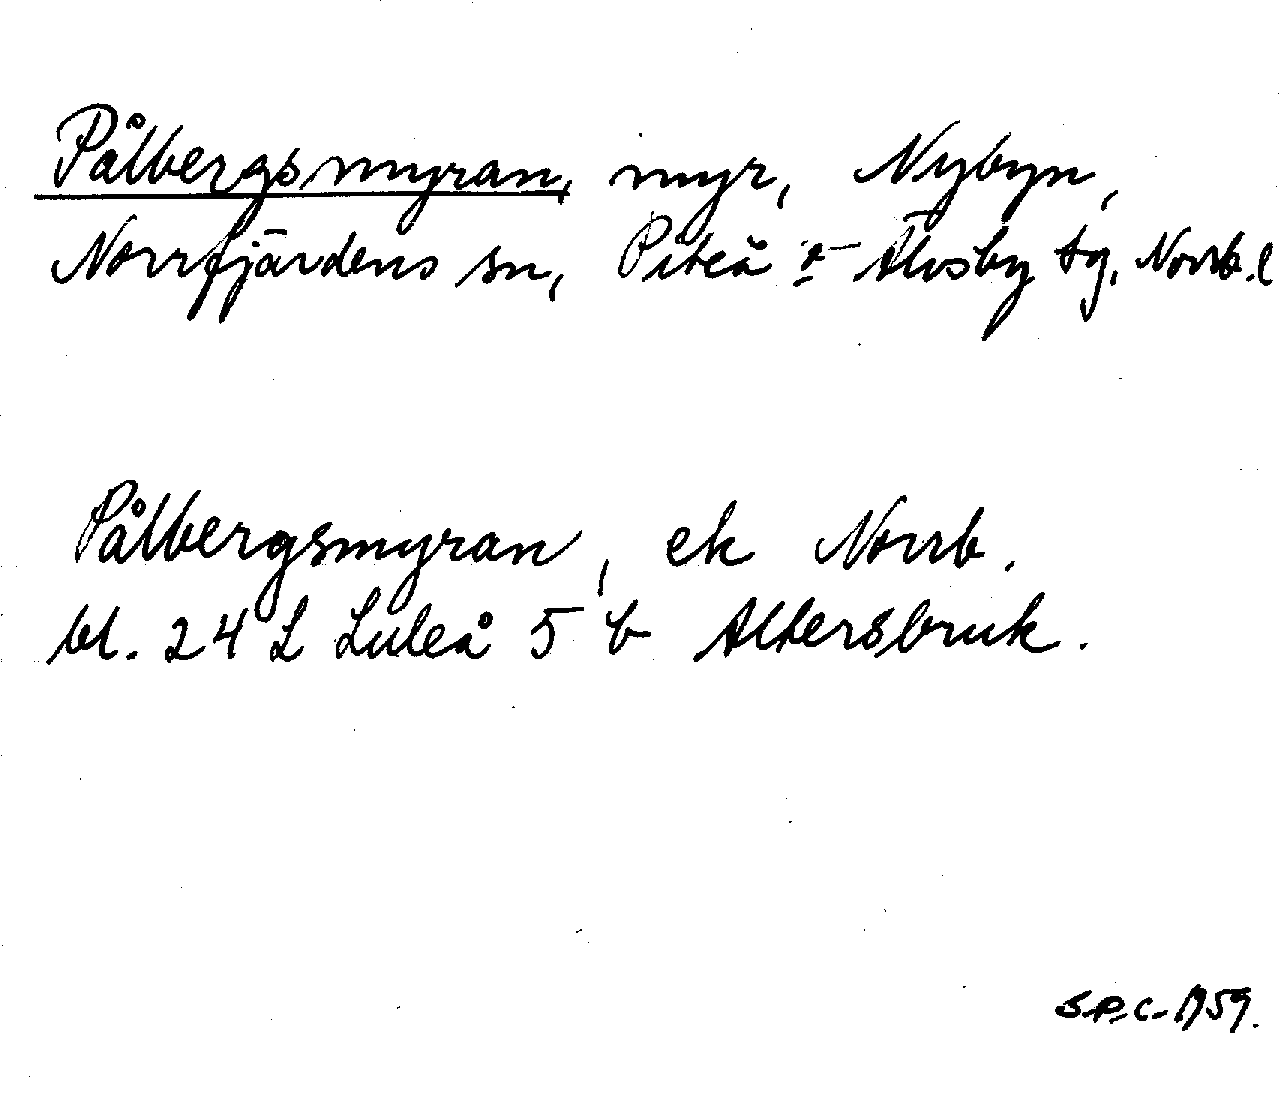 Pålbergsmyran, myr, Nybyn,
Norrfjärdens sn, Piteå o Älvsby tg, Norrb. l
Pålbergsmyran, ek Norrb.
bl. 24 L Luleå 5 b Altersbruk.
S.P.C. 1959.